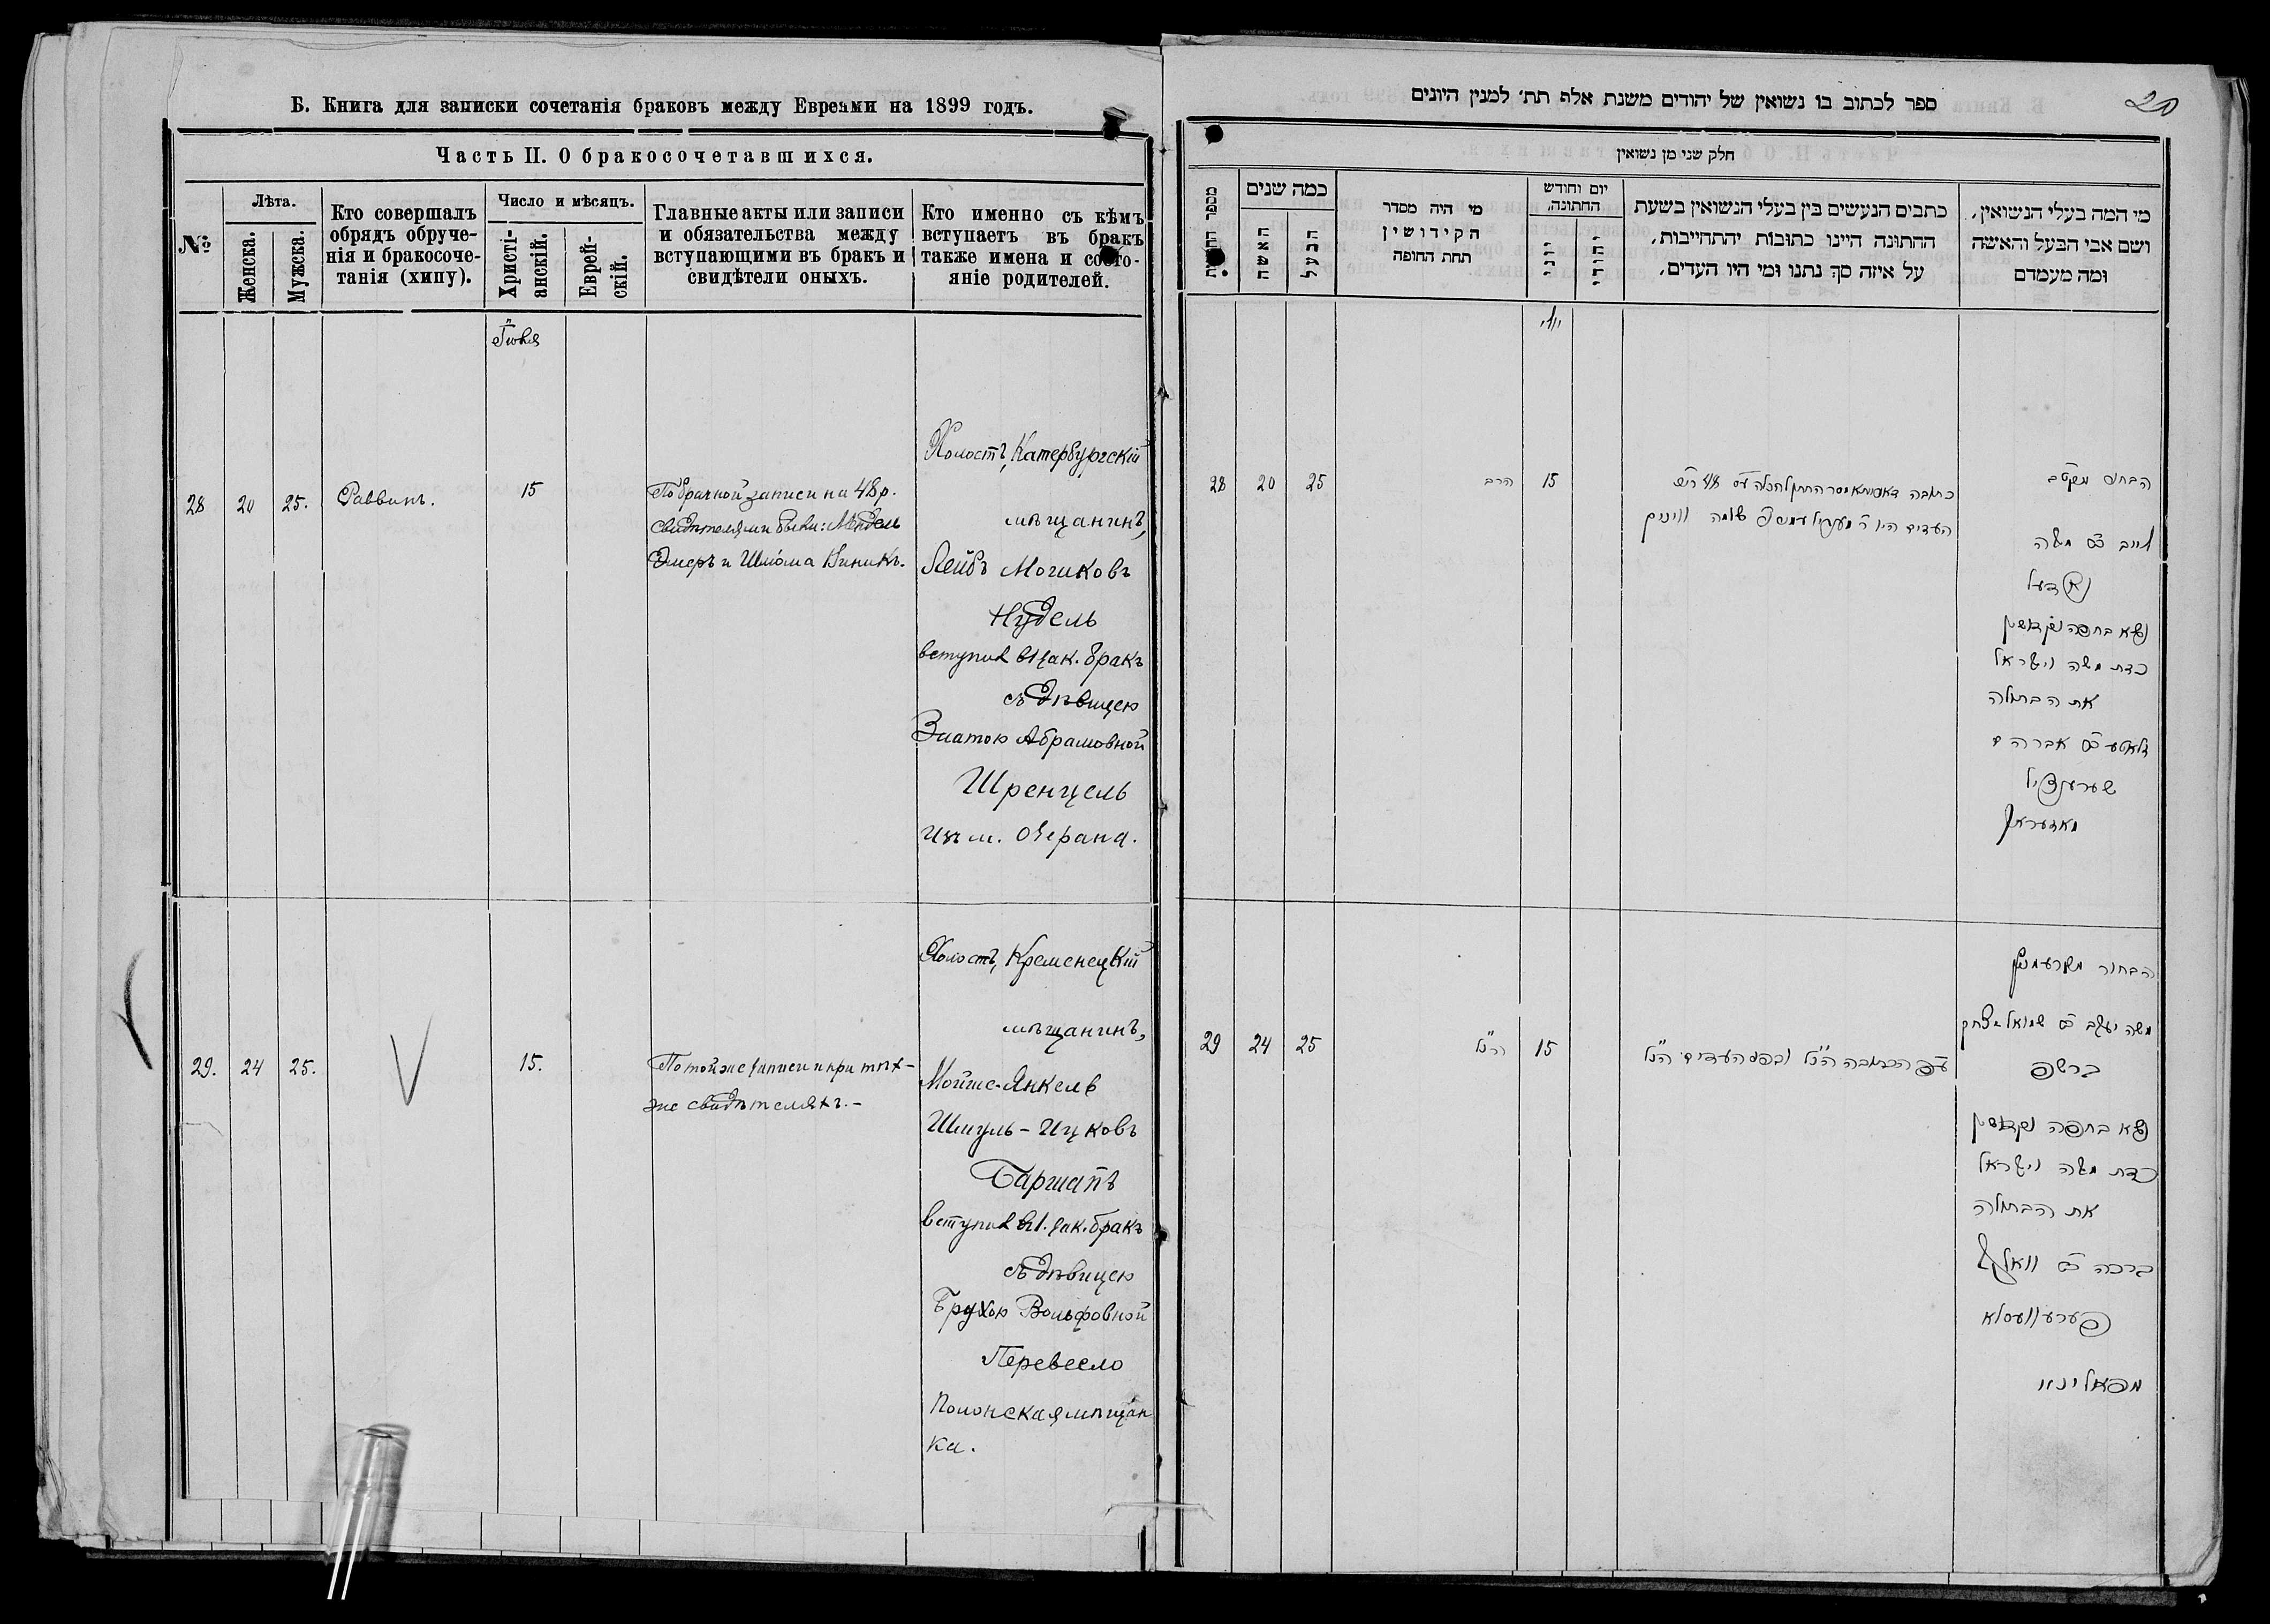 Б. Книга для записки сочетанія браковъ между Евреями на 1899 годъ.
Часть II. О бракосочетавшихся.
№
Лѣта.
Женска.
Мужска.
Кто совершалъ
обрядъ обруче-
нія и бракосоче-
танія (хипу).
Число и мѣсяцъ.
Христі-
анскій.
Еврей-
скій.
Главные акты или записи
и обязательства между
вступающими въ бракъ и
свидѣтели оныхъ.
Кто именно съ кѣмъ
вступаетъ въ бракъ
также имена и состо-
яніе родителей.
Іюля
28
20
25.
Раввинъ.
15
По брачной записи на 48 р.
свидѣтелями были: Мендель
и Шлёма Виникъ.
Холостъ, Катербургскій
мѣщанинъ,
Лейбъ Мошковъ
Нудель
вступил в 1 зак. бракъ
съ дѣвицею
Златою Абрамовной
Шренцель
изъ м. Озерана.
29.
24
25.
V
15.
По той же записи и при тѣх-
же свидѣтеляхъ. -
Холостъ, Кременецкій
мѣщанинъ,
Мойше-Янкель
Шмуль-Ицковъ
Баршапъ
вступил в 1. зак. бракъ
съ дѣвицею
Брухою Вольфовной
Перевесло
Полонская мѣщан
ка.
20
ספר לכתוב בו נשואין של יהודים משנת אלף תת׳ למנין היונים
חלק שני מן נשואין
מספר
כמה שנים
האשה
הבעל
מי היה מסדר
הקידושין
תחת החופה
יום וחודש
החתונה.
יוני
יהודי
כתבים הנעשים בין בעלי הנשואין בשעת
החתונה היינו כתובות יהתחייבות,
על איזה סך נתנו ומי היו העדים,
מי המה בעלי הנשואין,
ושם אבי הבעל והאשה
ומה מעמדם
יולי
28
20
25
הרב
15
הבחור
לייב בן משה
נודעל
נשא בחופה וקדושין
כדת משה וישראל
את הבתולה
זלאטע בת אברהם
שרענציל
29
24
25
הנ״ל
15
עפ״י הכתובה הנ״ל ובפני העדים הנ״ל
הבחור מקרעמניץ
משה יעקב בן שמואל יצחק
ברשפ
נשא בחופה וקדושין
כדת משה וישראל
את הבתולה
ברכה בת וואלף
פערעוועסלא
מפאלינאי